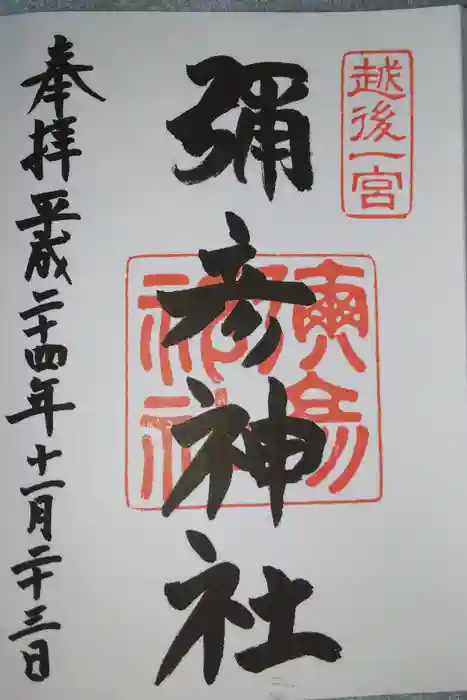 越後一宮
彌彦神社
奉拝 平成二十四年十一月二十三日